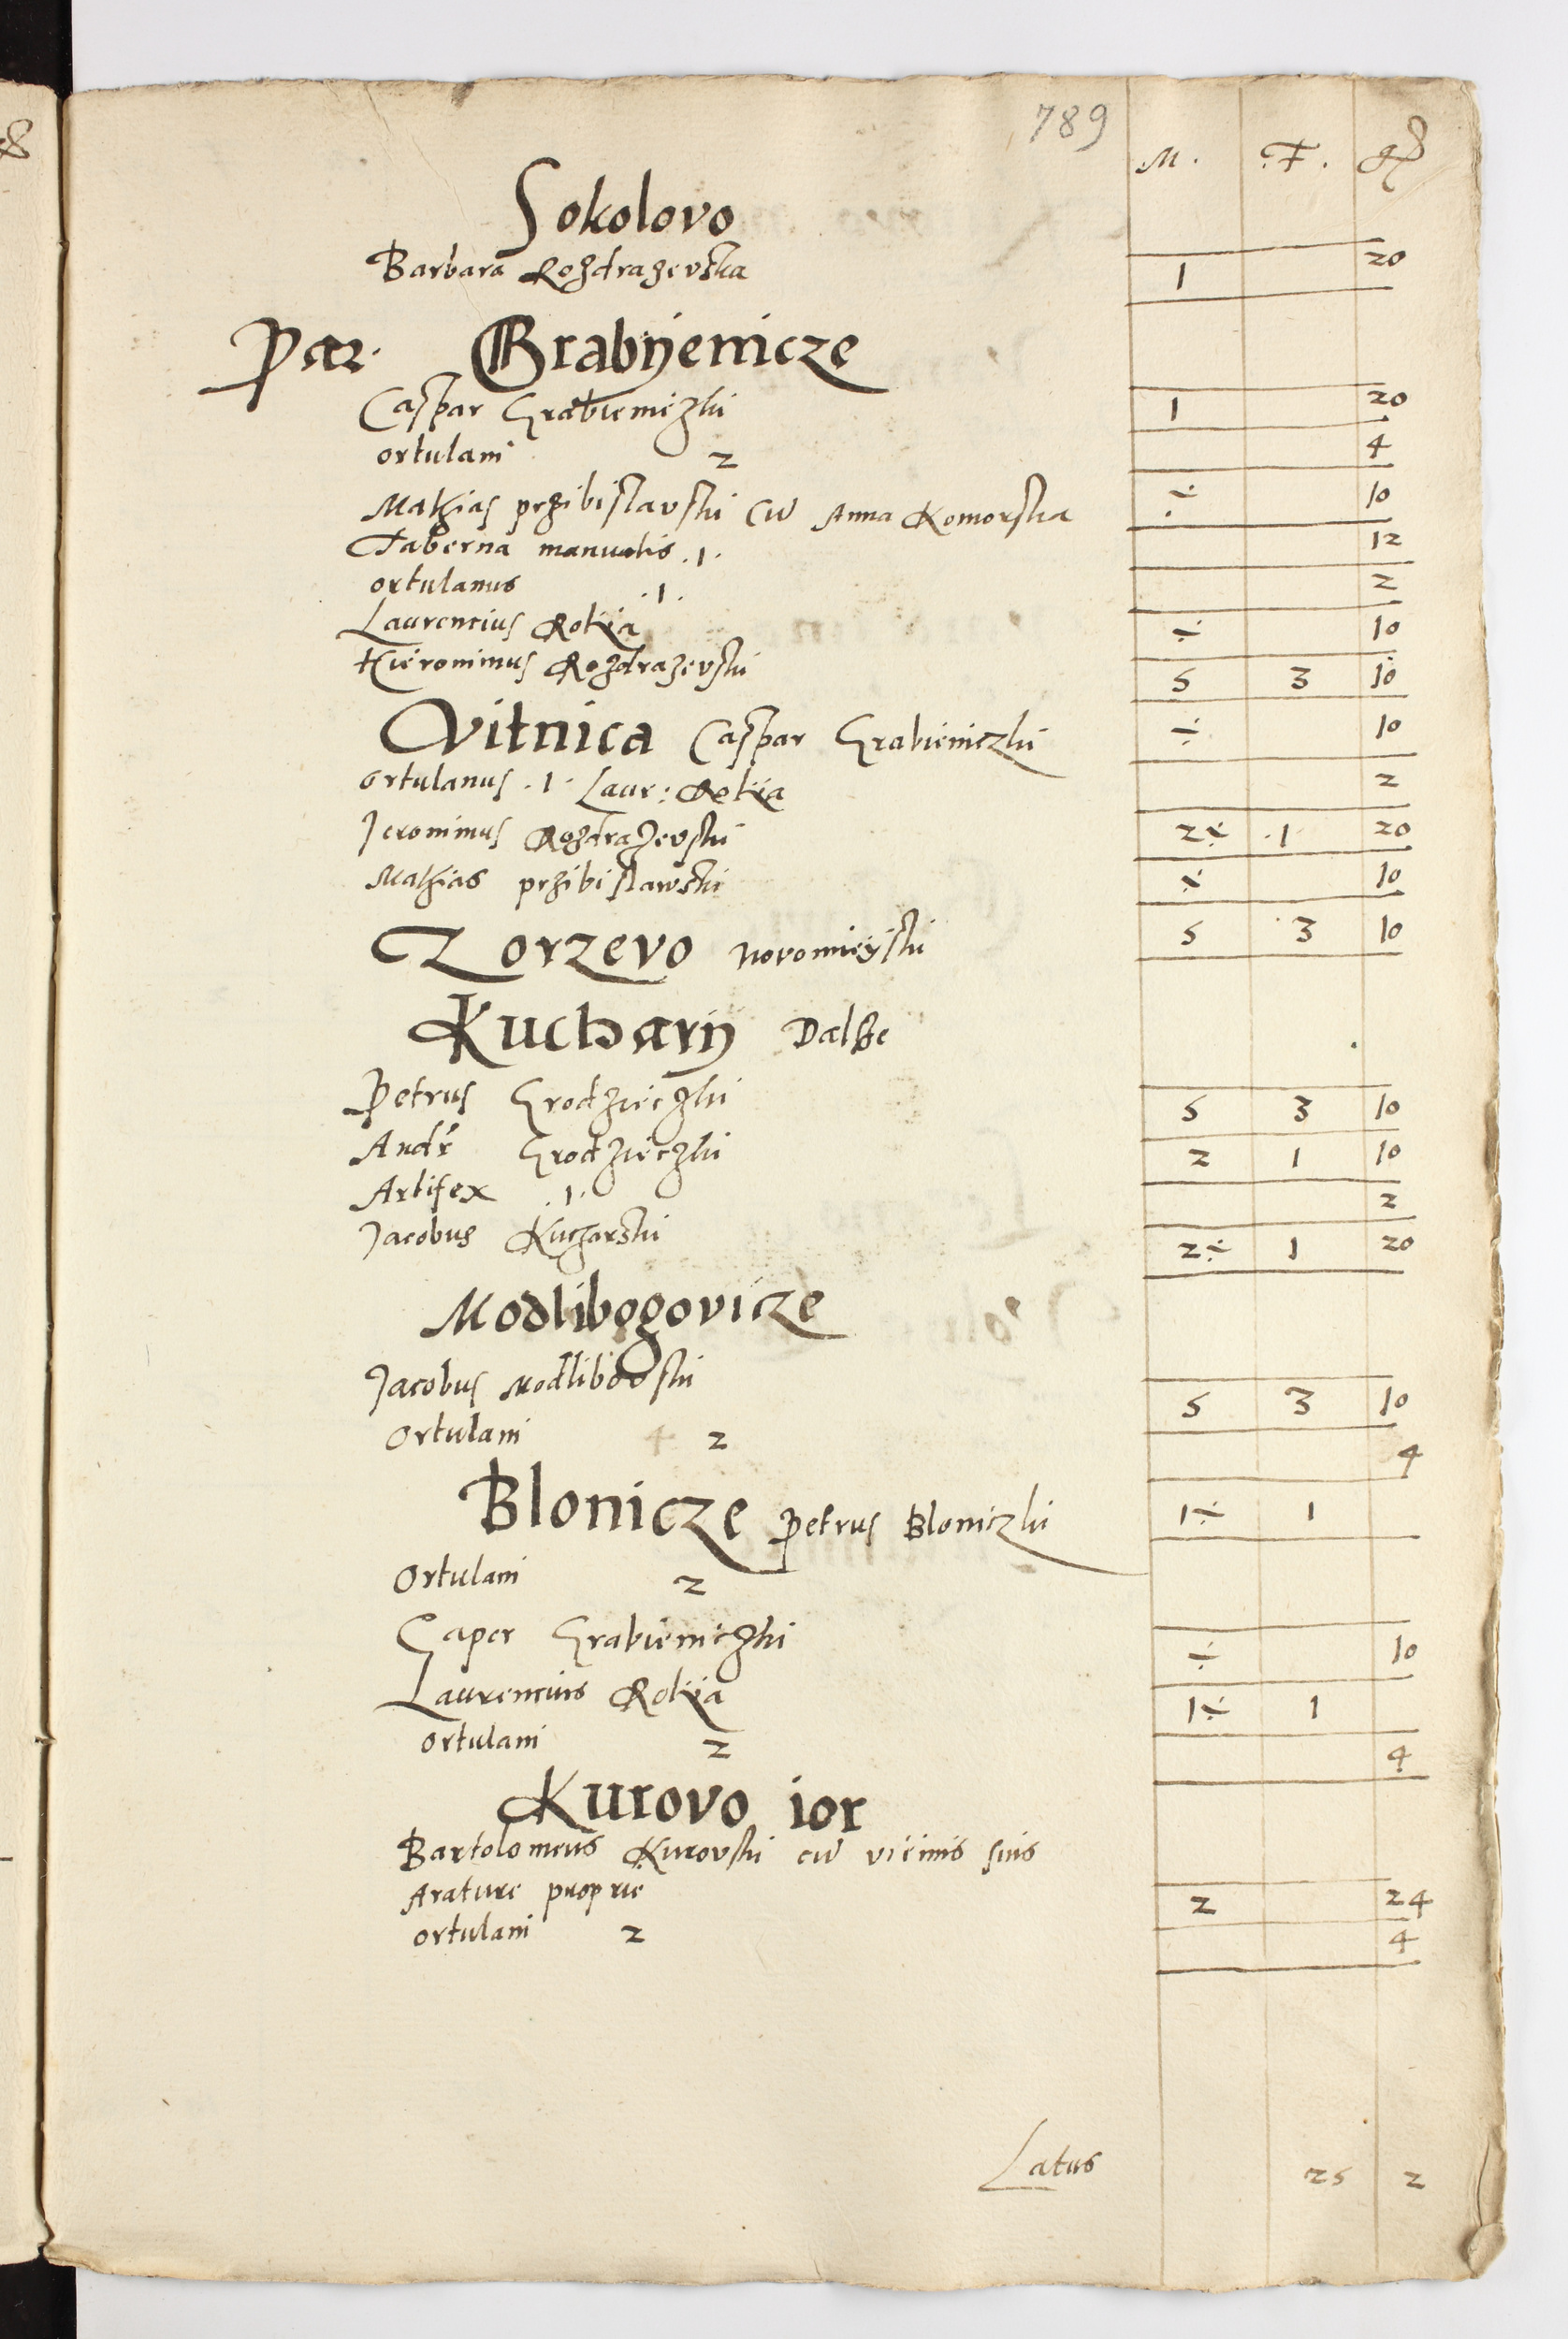 789
M. F. gr
Sokolovo
Barbara Rozdrazevska 1 20
Par. Grabyenicze
Caspar Grabieniczki 1 20
ortulani 2 4
Mathias przibislavski cu Anna Komorska ÷ 10
Taberna manualis .1. 12
ortulanus .1. 2
Laurencius Rokia ÷ 10
Hieronimus Rozdrazevski 5 3 10
Vitnica Caspar Grabieniczki ÷ 10
ortulanus .1. Laur: Rokia 2
Jeronimus Rozdrazevski 2÷ .1. 20
Mathias przibislawski ÷ 10
Zorzevo Novomieyski 5 3 10
Kuchary Dalsze
Petrus Grodzieczki 5 3 10
Andr Grodzieczki 2 1 10
Artifex .1. 2
Jacobus Kucharski 2÷ 1 20
Modlibogovicze
Jacobus Modlibovski 5 3 10
Ortulani 2 4
Blonicze Petrus Bloniczki 1÷ 1
Ortulani 2
Gaper Grabieniczki ÷ 10
Laurencius Rokia 1÷ 1
ortulani 2 4
Kurovo ior
Bartolomeus Kurovski cu vicinis suis
Arature proprie 2 24
ortulani 2 4
Latus 25 2